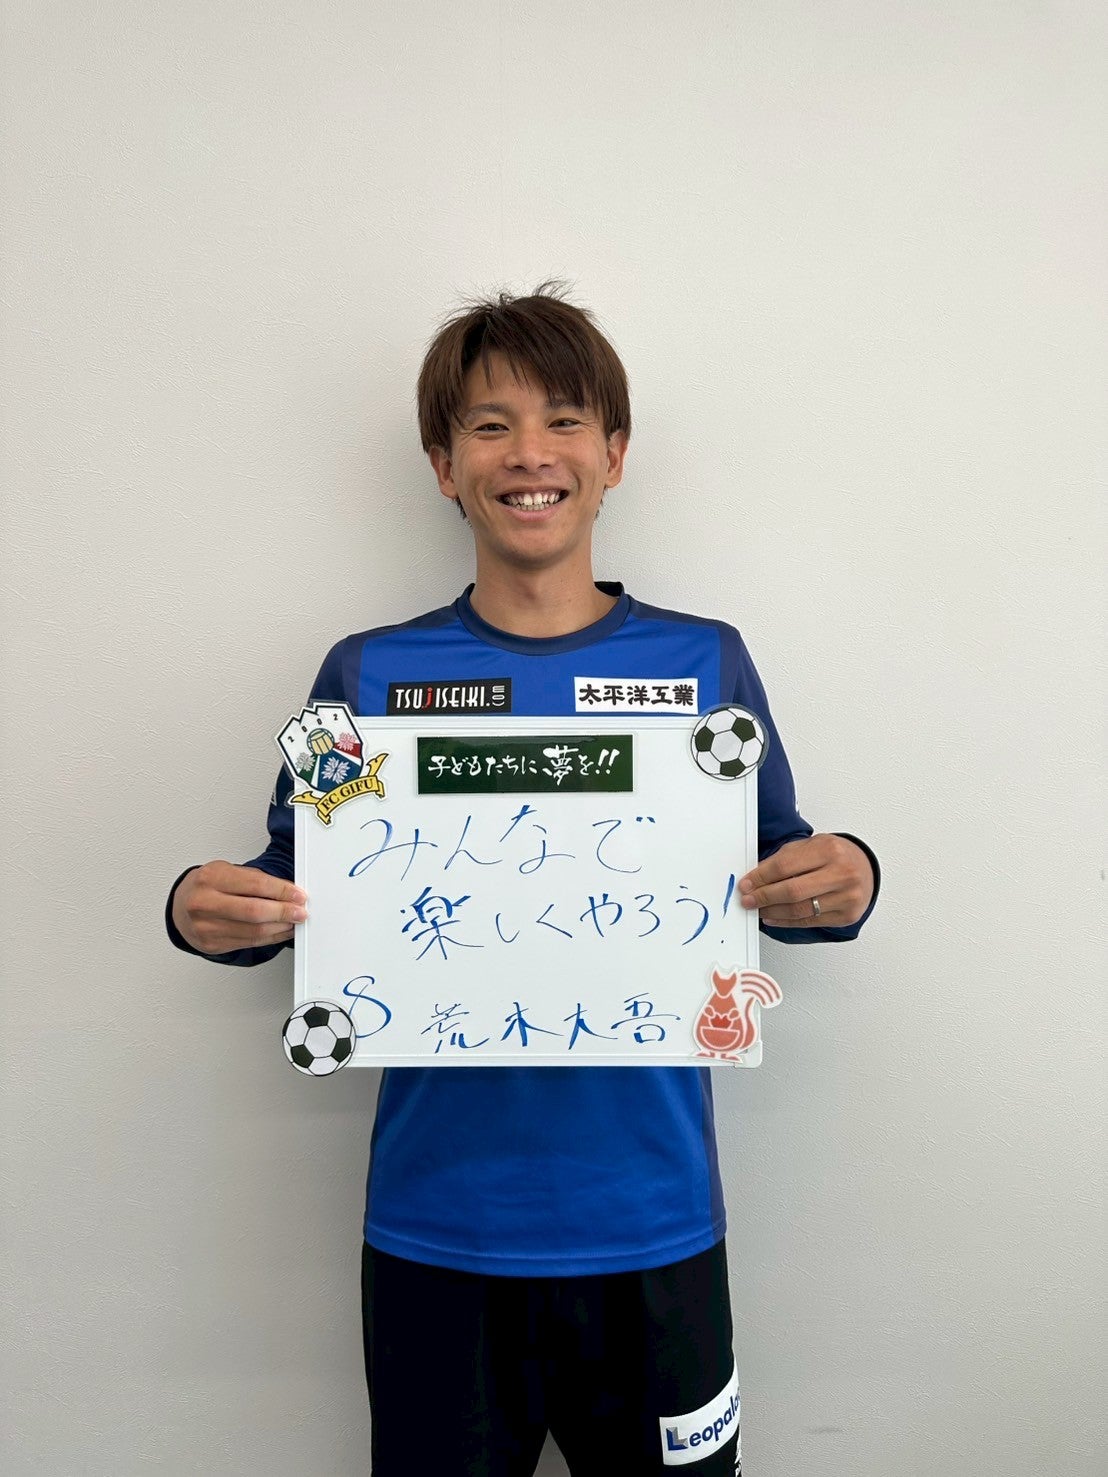 TSUJISEIKI.com
太平洋工業
2002
FC GIFU
子どもたちに夢を!!
みんなで
楽しくやろう!
8 荒木大吾
Leopala